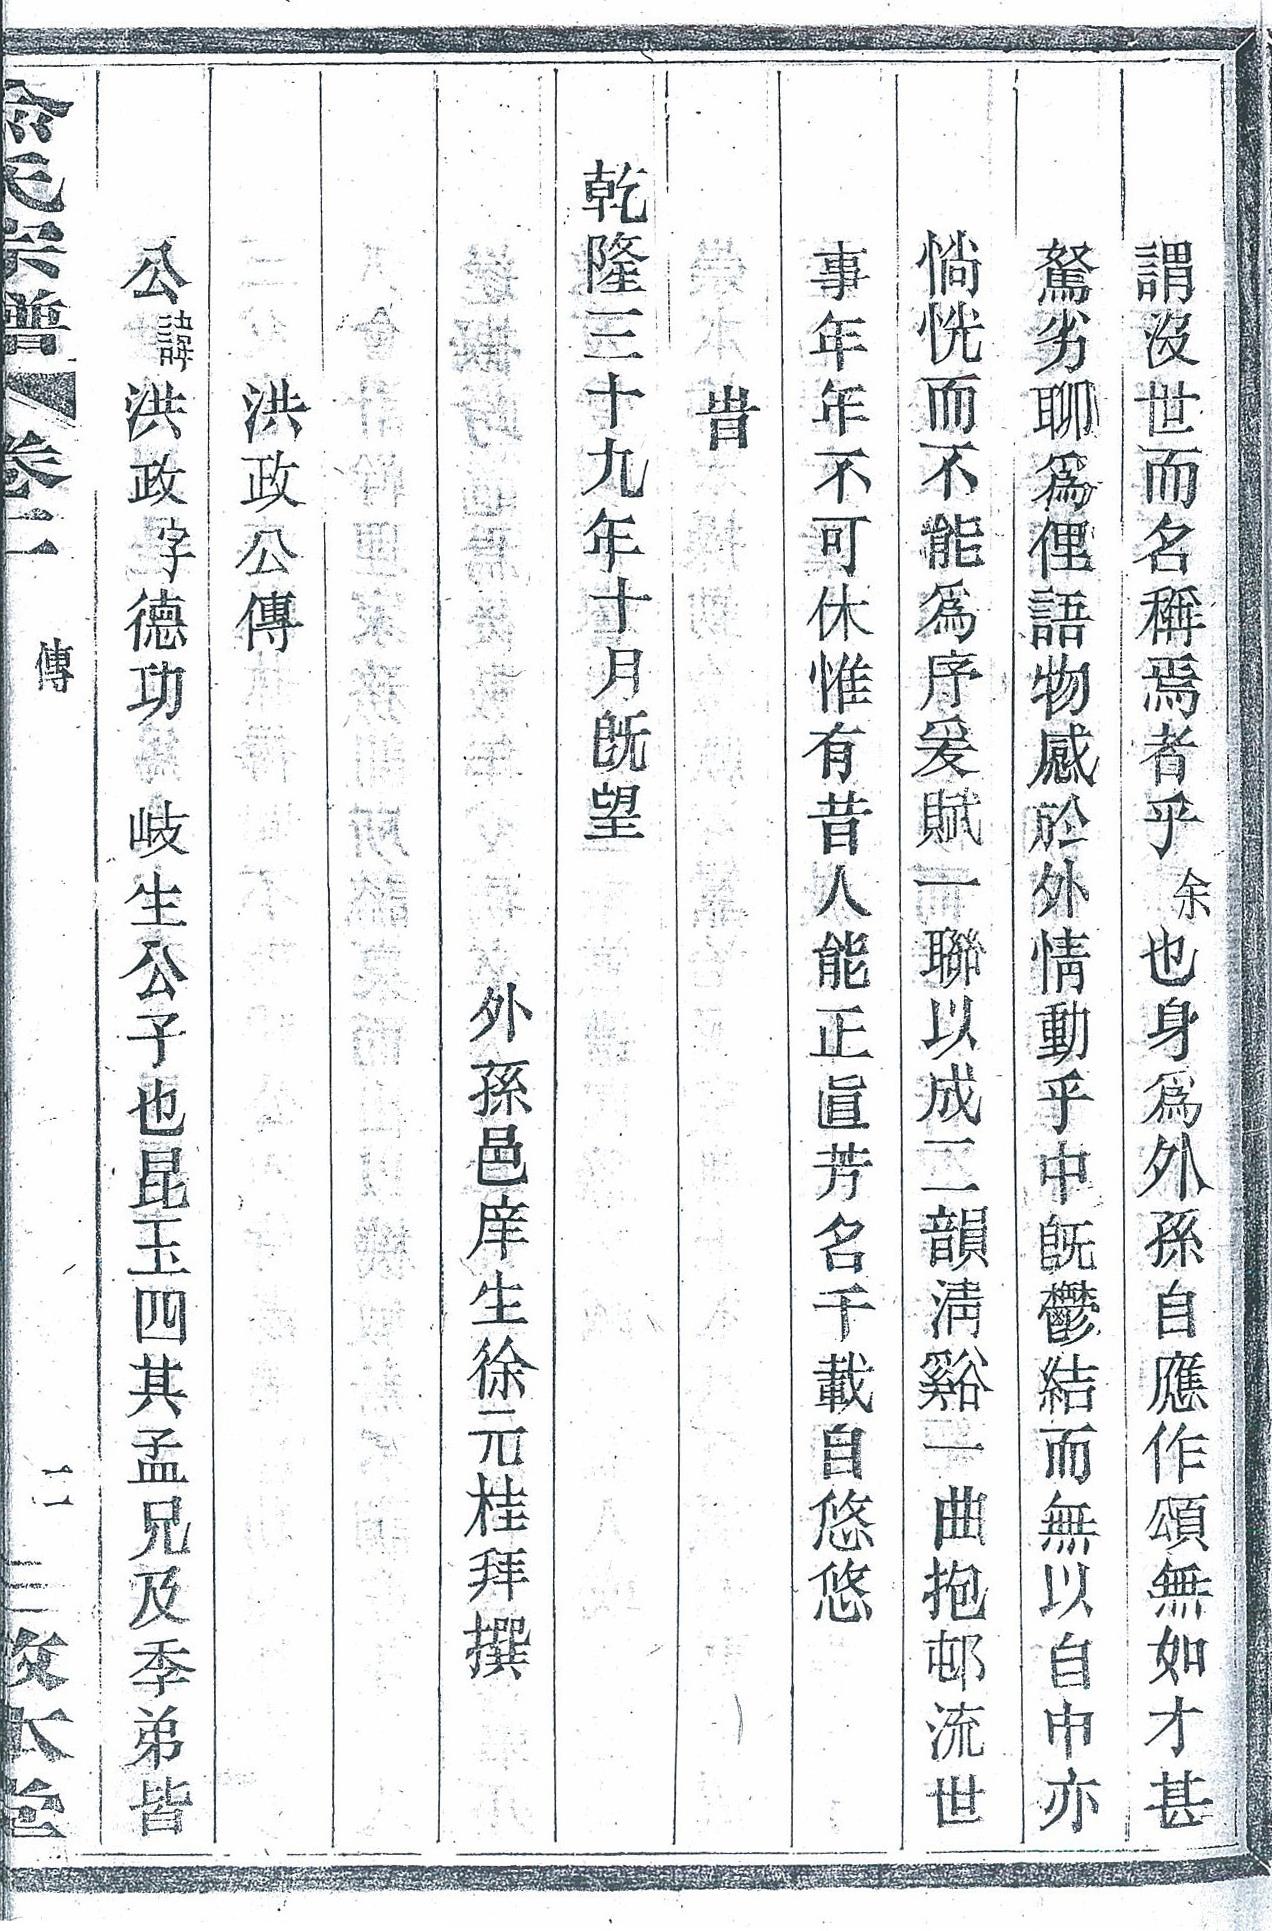 謂沒世而名稱焉者乎余也身爲外孫自應作頌無如才甚
駑劣聊爲俚語物感於外情動乎中旣鬱結而無以自申亦
惝恍而不能爲序爰賦一聯以成二韻淸谿一曲抱邨流世
事年年不可休惟有昔人能正眞芳名千載自悠悠
旹
乾隆三十九年十月旣望
外孫邑庠生徐元桂拜撰
洪政公傳
公諱洪政字德功 歧生公子也昆玉四其孟兄及季弟皆
氏宗譜 卷二 傳 二 三敦本堂